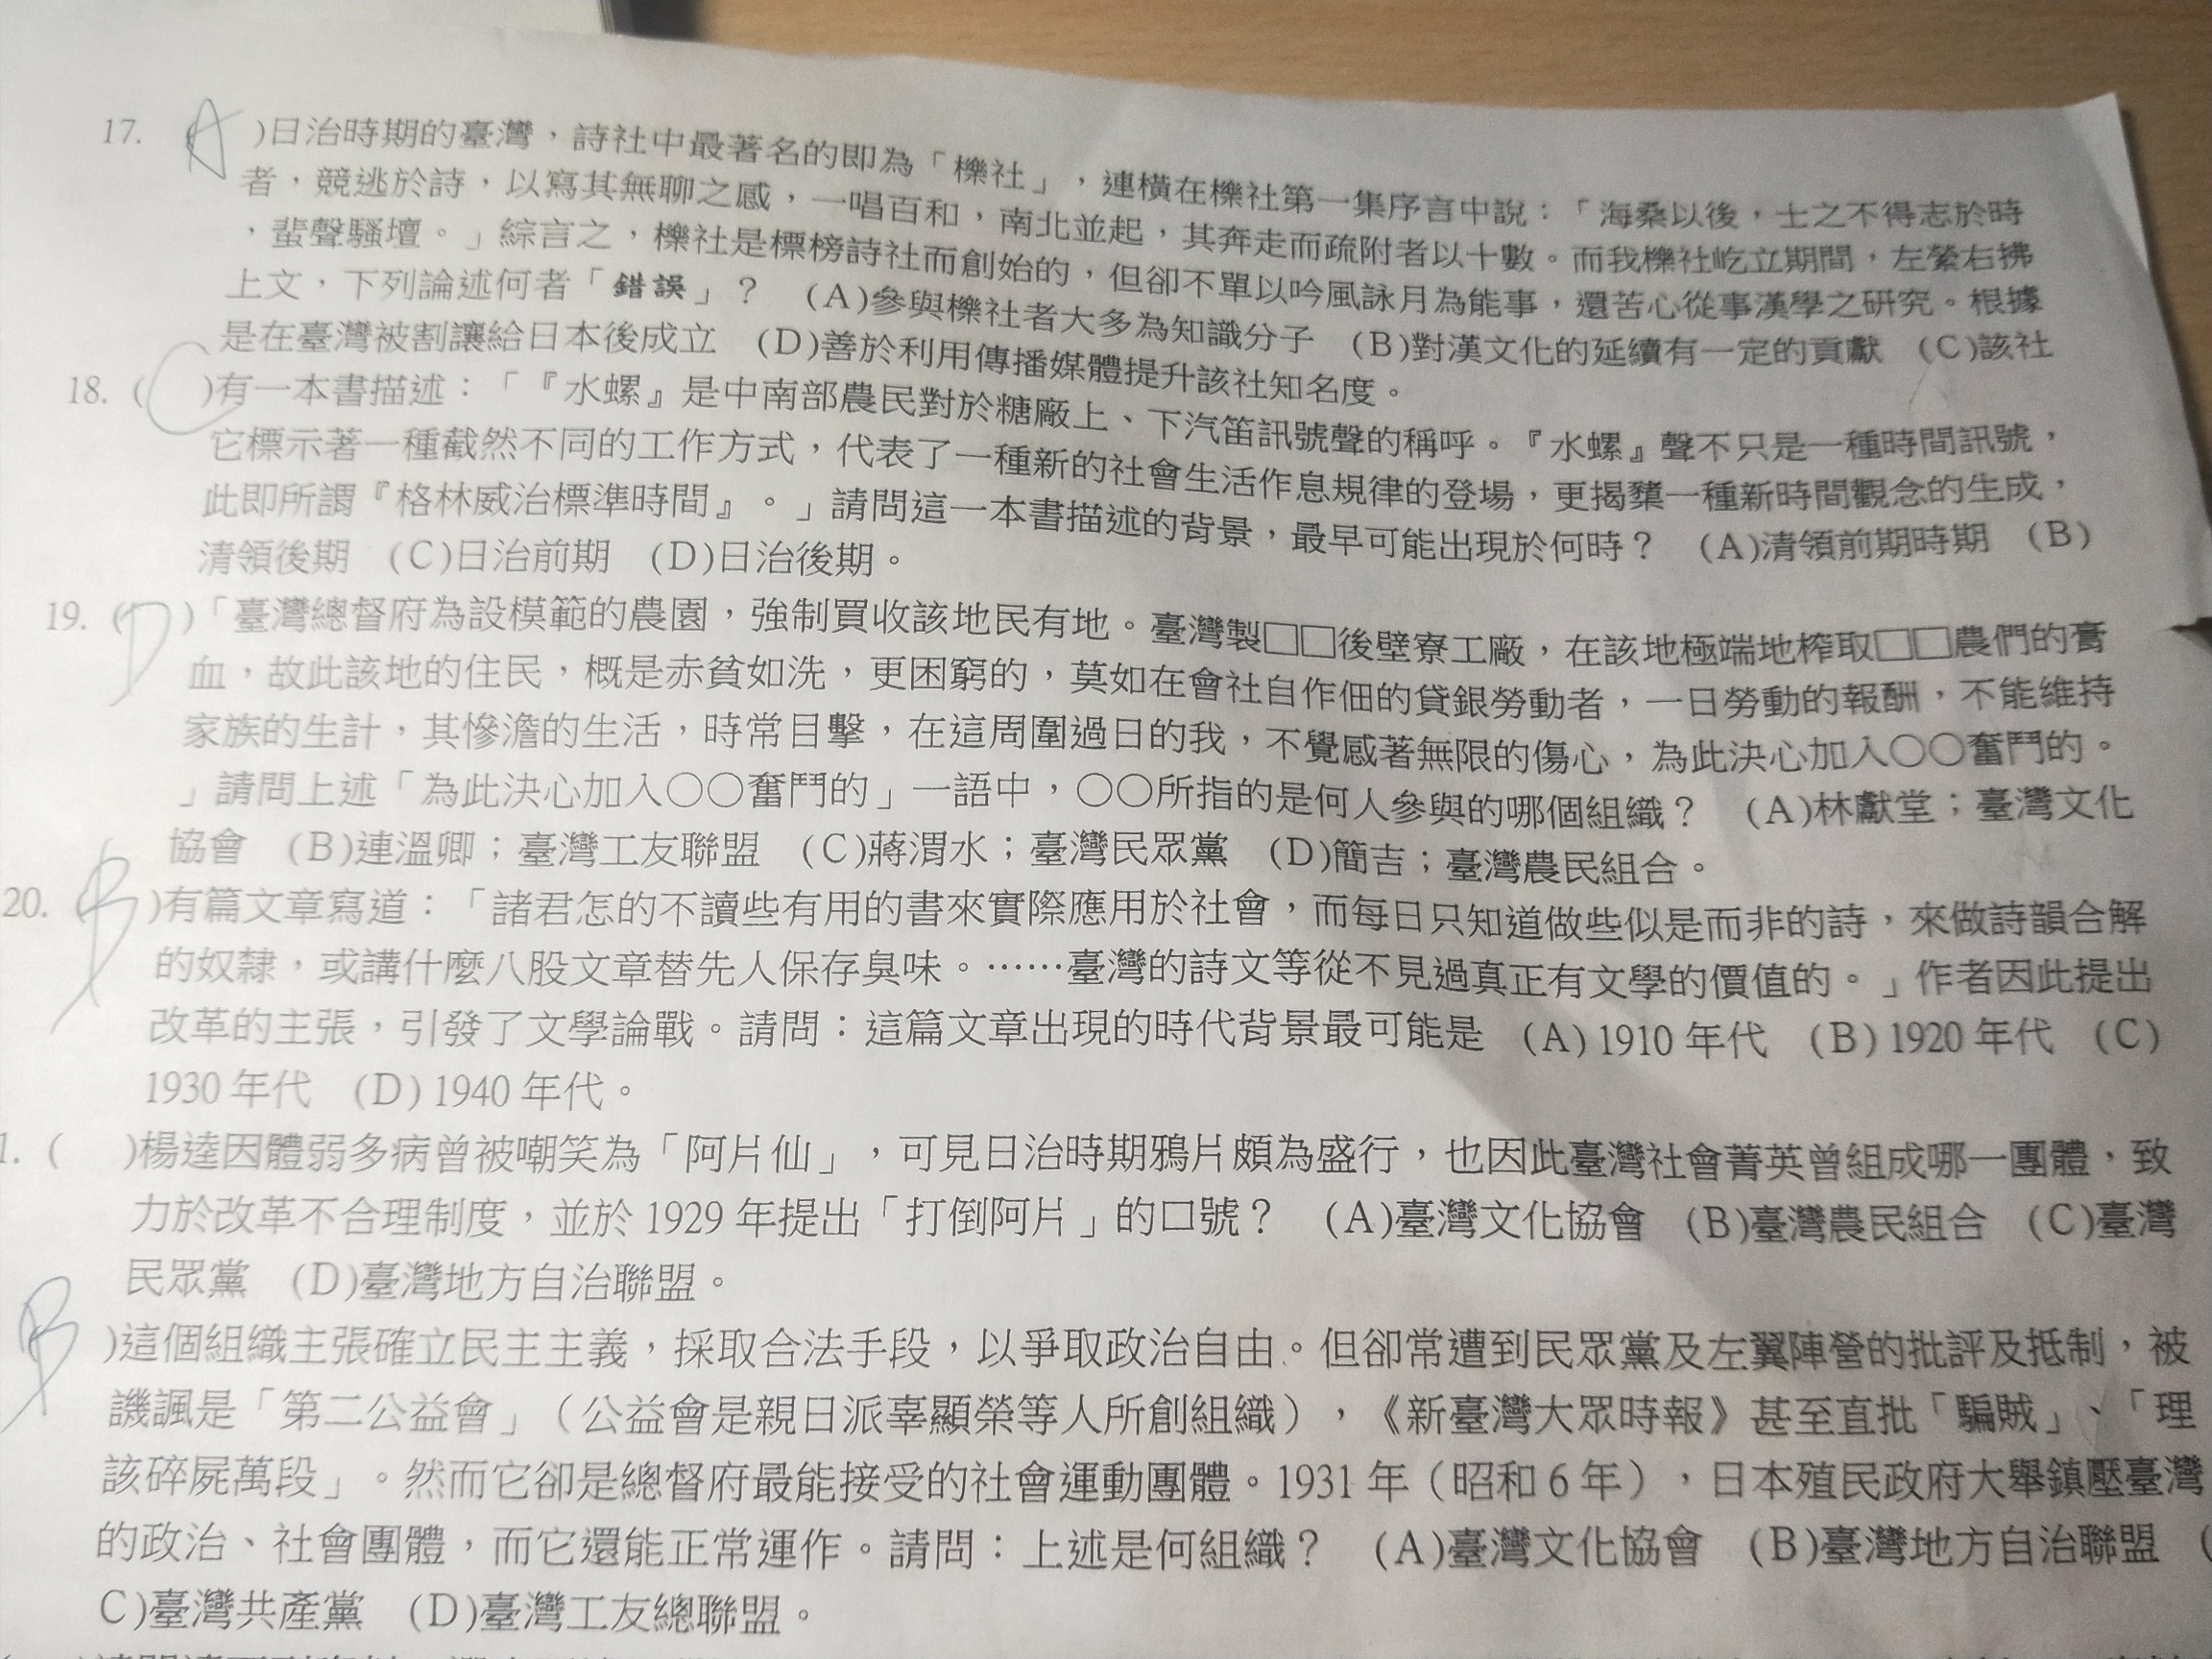 17. (A)日治時期的臺灣，詩社中最著名的即為「櫟社」，連橫在櫟社第一集序言中說：「海桑以後，士之不得志於時
者，競逃於詩，以寫其無聊之感，一唱百和，南北並起，其奔走而疏附者以十數。而我櫟社屹立期間，左縈右拂
，蜚聲騷壇。」綜言之，櫟社是標榜詩社而創始的，但卻不單以吟風詠月為能事，還苦心從事漢學之研究。根據
上文，下列論述何者「錯誤」？ (A)參與櫟社者大多為知識分子 (B)對漢文化的延續有一定的貢獻 (C)該社
是在臺灣被割讓給日本後成立 (D)善於利用傳播媒體提升該社知名度。
18. (C)有一本書描述：「『水螺』是中南部農民對於糖廠上、下汽笛訊號聲的稱呼。『水螺』聲不只是一種時間訊號，
它標示著一種截然不同的工作方式，代表了一種新的社會生活作息規律的登場，更揭櫫一種新時間觀念的生成，
此即所謂『格林威治標準時間』。」請問這一本書描述的背景，最早可能出現於何時？ (A)清領前期時期 (B)
清領後期 (C)日治前期 (D)日治後期。
19. (D)「臺灣總督府為設模範的農園，強制買收該地民有地。臺灣製□□後壁寮工廠，在該地極端地榨取□□農們的膏
血，故此該地的住民，概是赤貧如洗，更困窮的，莫如在會社自作佃的貸銀勞動者，一日勞動的報酬，不能維持
家族的生計，其慘澹的生活，時常目擊，在這周圍過日的我，不覺感著無限的傷心，為此決心加入○○奮鬥的。
」請問上述「為此決心加入○○奮鬥的」一語中，○○所指的是何人參與的哪個組織？ (A)林獻堂；臺灣文化
協會 (B)連溫卿；臺灣工友聯盟 (C)蔣渭水；臺灣民眾黨 (D)簡吉；臺灣農民組合。
20. (B)有篇文章寫道：「諸君怎的不讀些有用的書來實際應用於社會，而每日只知道做些似是而非的詩，來做詩韻合解
的奴隸，或講什麼八股文章替先人保存臭味。……臺灣的詩文等從不見過真正有文學的價值的。」作者因此提出
改革的主張，引發了文學論戰。請問：這篇文章出現的時代背景最可能是 (A)1910 年代 (B)1920 年代 (C)
1930 年代 (D)1940 年代。
1. ( )楊逵因體弱多病曾被嘲笑為「阿片仙」，可見日治時期鴉片頗為盛行，也因此臺灣社會菁英曾組成哪一團體，致
力於改革不合理制度，並於 1929 年提出「打倒阿片」的口號？ (A)臺灣文化協會 (B)臺灣農民組合 (C)臺灣
民眾黨 (D)臺灣地方自治聯盟。
B )這個組織主張確立民主主義，採取合法手段，以爭取政治自由。但卻常遭到民眾黨及左翼陣營的批評及抵制，被
譏諷是「第二公益會」（公益會是親日派辜顯榮等人所創組織），《新臺灣大眾時報》甚至直批「騙賊」、「理
該碎屍萬段」。然而它卻是總督府最能接受的社會運動團體。1931 年（昭和 6 年），日本殖民政府大舉鎮壓臺灣
的政治、社會團體，而它還能正常運作。請問：上述是何組織？ (A)臺灣文化協會 (B)臺灣地方自治聯盟 (
C)臺灣共產黨 (D)臺灣工友總聯盟。